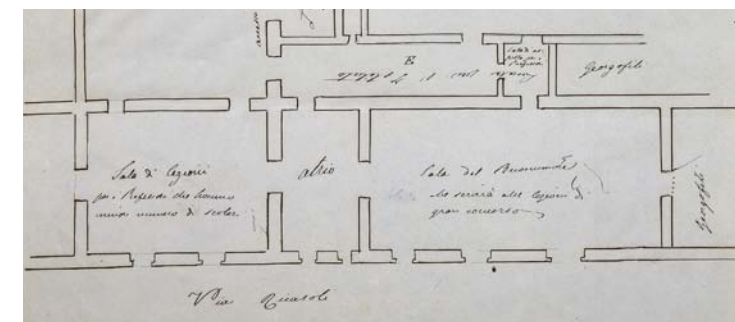 E
Georgofili
Sala di Lezioni
per i Professori che hanno
minor numero di scolari
atrio
Sala del Buonumore
che servirà alle lezioni di
gran concorso
Georgofili
Via Ricasoli